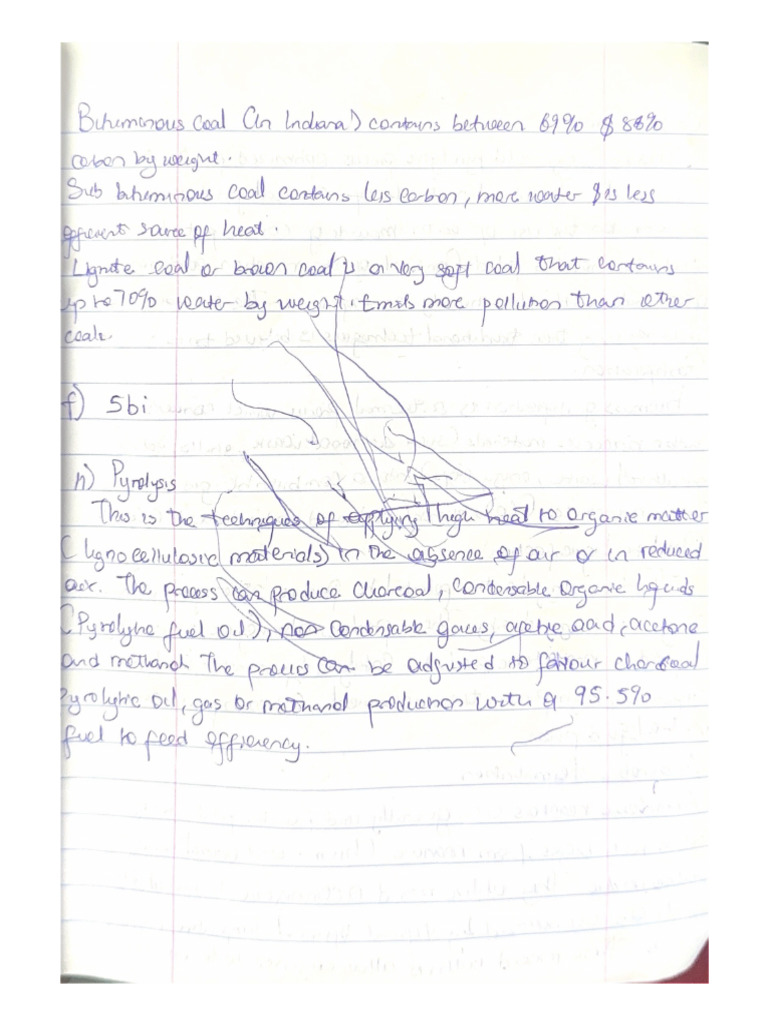 Bituminous Coal (In Indiana) contains between 69% & 88%
carbon by weight.
Sub bituminous coal contains less carbon, more water & is less
efficient source of heat.
Lignite coal or brown coal is a very soft coal that contains
up to 70% water by weight. Emits more pollution than other
coals.
f) 5bi
h) Pyrolysis
This is the techniques of applying high heat to organic matter
(lignocellulosic materials) in the absence of air or in reduced
air. The process can produce charcoal, condensable organic liquids
(Pyrolytic fuel oil), non condensable gases, acetic acid, acetone
and methanol. The process can be adjusted to favour charcoal
Pyrolytic oil, gas or methanol production with a 95.5%
fuel to feed efficiency.